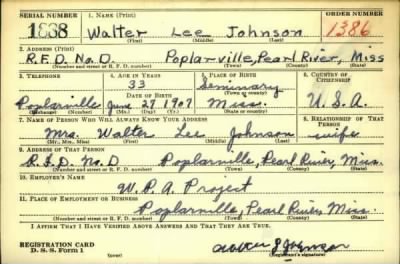 SERIAL NUMBER 1. NAME (Print) ORDER NUMBER
1838 Walter Lee Johnson 1386
(First) (Middle) (Last)
2. ADDRESS (Print)
R.F.D. No. D Poplarville, Pearl River, Miss
(Number and street or R. F. D. number) (Town) (County) (State)
3. TELEPHONE 4. AGE IN YEARS 5. PLACE OF BIRTH 6. COUNTRY OF CITIZENSHIP
33 Seminary
DATE OF BIRTH (Town or county)
Poplarville June 27 1907 Miss. U.S.A.
(Exchange) (Number) (Mo.) (Day) (Yr.) (State or country)
7. NAME OF PERSON WHO WILL ALWAYS KNOW YOUR ADDRESS 8. RELATIONSHIP OF THAT PERSON
Mrs. Walter Lee Johnson wife
(Mr., Mrs., Miss) (First) (Middle) (Last)
9. ADDRESS OF THAT PERSON
R.F.D. No. D Poplarville, Pearl River, Miss.
(Number and street or R. F. D. number) (Town) (County) (State)
10. EMPLOYER'S NAME
W.P.A. Project
11. PLACE OF EMPLOYMENT OR BUSINESS
Poplarville, Pearl River, Miss.
(Number and street or R. F. D. number) (Town) (County) (State)
I AFFIRM THAT I HAVE VERIFIED ABOVE ANSWERS AND THAT THEY ARE TRUE.
REGISTRATION CARD
D. S. S. Form 1 (Registrant's signature)